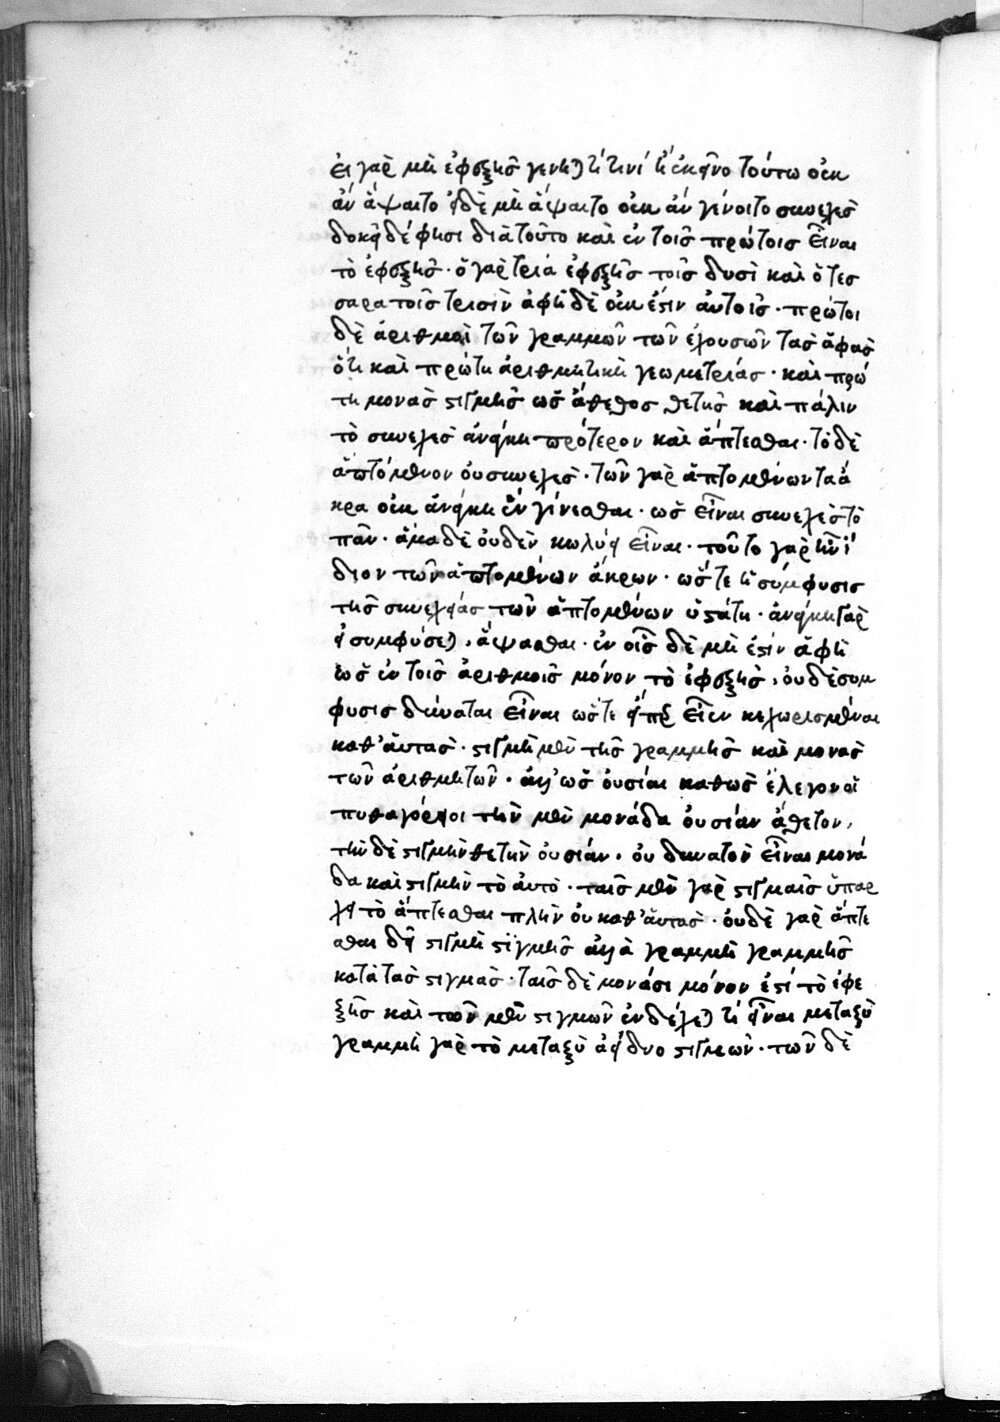 εἰ γὰρ μὴ ἐφεξῆς γένηται τί τινί ἢ ἐκεῖνο τούτω οὐκ
ἂν ἅψαιτο εἰ δὲ μὴ ἅψαιτο οὐκ ἂν γένοιτο συνεχὲς
δοκεῖ δέ φησι διὰ τοῦτο καὶ ἐν τοῖς πρώτοις εἶναι
τὸ ἐφεξῆς · ὁ γὰρ τρία ἐφεξῆς τοῖς δυσὶ καὶ ὁ τέσ
σαρα τοῖς τρισὶν ἁφὴ δὲ οὐκ ἔστιν αὐτοῖς · πρῶτοι
δὲ ἀριθμοὶ τῶν γραμμῶν τῶν ἐχουσῶν τὰς ἁφὰς
ὅτι καὶ πρώτη ἀριθμητικὴ γεωμετρίας · καὶ πρώ
τη μονὰς στιγμῆς ὡς ἄθετος θετῆς καὶ πάλιν
τὸ συνεχὲς ἀνάγκη πρότερον καὶ ἅπτεσθαι · τὸ δὲ
ἁπτόμενον οὐ συνεχὲς · τῶν γὰρ ἁπτομένων τὰ ἄ
κρα οὐκ ἀνάγκη ἓν γίνεσθαι · ὡς εἶναι συνεχὲς τὸ
πᾶν · ἅμα δὲ οὐδὲν κωλύει εἶναι · τοῦτο γὰρ ἦν ἴ
διον τῶν ἁπτομένων ἄκρων · ὥστε ἡ σύμφυσις
τῆς συνεχείας τῶν ἁπτομένων ὑστάτη · ἀνάγκη γὰρ
εἰ συμφύσεται, ἅψασθαι · ἐν οἷς δὲ μή ἐστιν ἁφὴ
ὡς ἐν τοῖς ἀριθμοῖς μόνον τὸ ἐφεξῆς, οὐδὲ σύμ
φυσις δύναται εἶναι ὥστε εἴπερ εἶεν κεχωρισμέναι
καθ' αὑτὰς · στιγμὴ μὲν τῆς γραμμῆς καὶ μονὰς
τῶν ἀριθμητῶν · ἀλλ' ὡς οὐσίαι καθὼς ἔλεγον οἱ
πυθαγόρειοι τὴν μὲν μονάδα οὐσίαν ἄθετον,
τὴν δὲ στιγμὴν θετὴν οὐσίαν, οὐ δυνατὸν εἶναι μονά
δα καὶ στιγμὴν τὸ αὐτὸ · ταῖς μὲν γὰρ στιγμαῖς ὑπάρ
χει τὸ ἅπτεσθαι πλὴν οὐ καθ' αὑτὰς · οὐδὲ γὰρ ἅπτε
σθαι δεῖ στιγμὴ στιγμῆς ἀλλὰ γραμμὴ γραμμῆς
κατὰ τὰς στιγμὰς · ταῖς δὲ μονάσι μόνον ἐστὶ τὸ ἐφε
ξῆς καὶ τῶν μὲν στιγμῶν ἐνδέχεταί τι εἶναι μεταξὺ
γραμμὴ γὰρ τὸ μεταξὺ ἀεὶ δύο στιγμῶν · τῶν δὲ